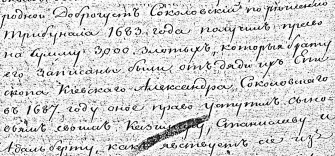 родной Доброгустъ Соколовскій по решению
Трибунала 1683. года получилъ право
на Сумму 3,000. злотыхъ, которыя брату
его записаны были отъ дяди ихъ Епи
скопа Кіевскаго Александра Соколовскаго
въ 1687. году оное право уступилъ сыно
вьямъ своимъ Казимиру, Станиславу и
Адальберту, какъ явствуетъ из